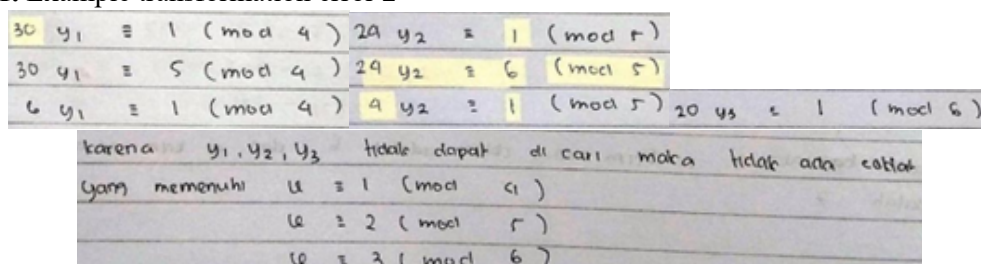 30 y₁ ≡ 1 (mod 4) 24 y₂ ≡ 1 (mod 5)
30 y₁ ≡ 5 (mod 4) 24 y₂ ≡ 6 (mod 5)
6 y₁ ≡ 1 (mod 4) 4 y₂ ≡ 1 (mod 5) 20 y₃ ≡ 1 (mod 6)
karena y₁, y₂, y₃ tidak dapat di cari maka tidak ada coklat
yang memenuhi ≡ 1 (mod 4)
≡ 2 (mod 5)
≡ 3 (mod 6)